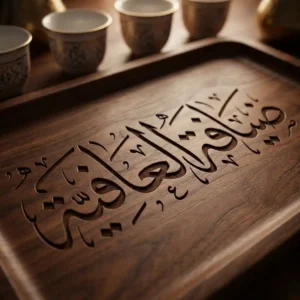 ضيافة العافية